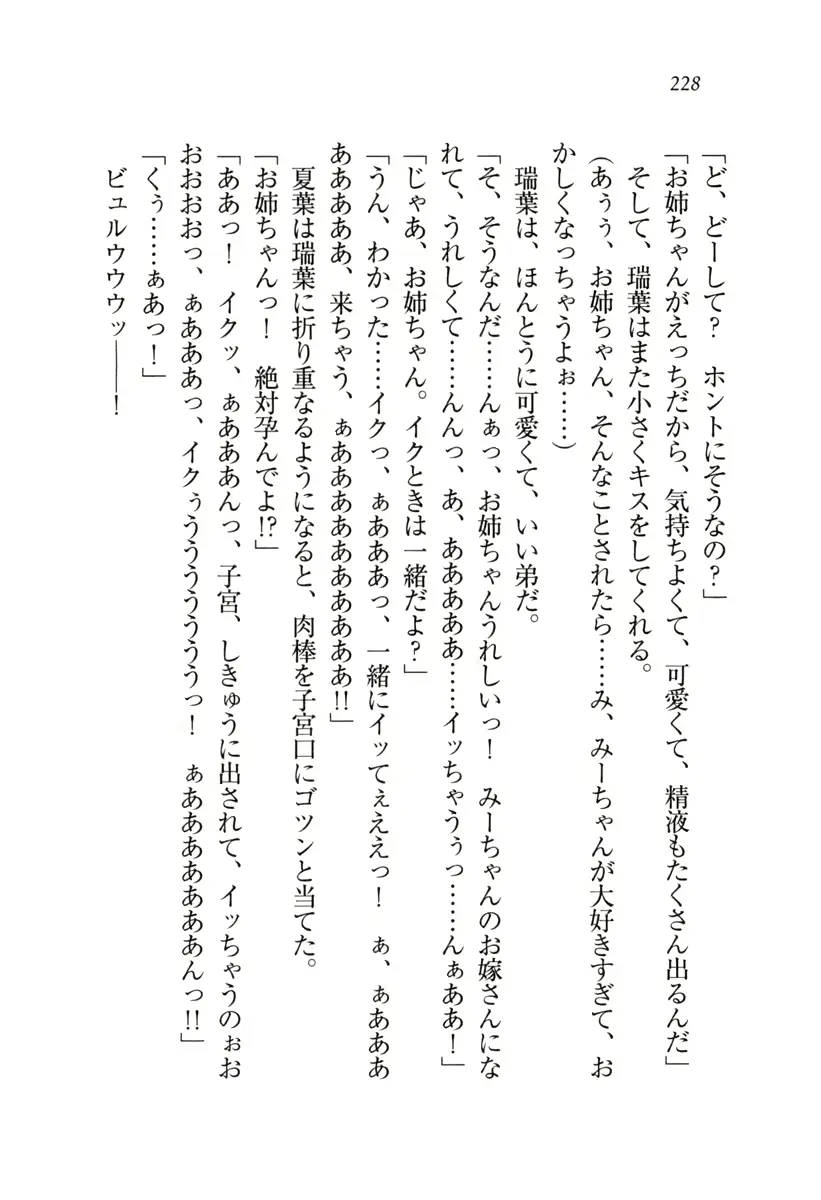 228
「ど、どーして？　ホントにそうなの？」
「お姉ちゃんがえっちだから、気持ちよくて、可愛くて、精液もたくさん出るんだ」
　そして、瑞葉はまた小さくキスをしてくれる。
（あぅぅ、お姉ちゃん、そんなことされたら……み、みーちゃんが大好きすぎて、お
かしくなっちゃうよぉ……）
　瑞葉は、ほんとうに可愛くて、いい弟だ。
「そ、そうなんだ……んぁっ、お姉ちゃんうれしいっ！　みーちゃんのお嫁さんにな
れて、うれしくて……んんっ、あ、ああああぁ……イッちゃうぅっ……んぁああ！」
「じゃあ、お姉ちゃん。イクときは一緒だよ？」
「うん、わかった……イクっ、ぁあああっ、一緒にイッてぇええっ！　ぁ、ぁあああ
あああああ、来ちゃう、ぁああああああああああ!!」
　夏葉は瑞葉に折り重なるようになると、肉棒を子宮口にゴツンと当てた。
「お姉ちゃんっ！　絶対孕んでよ!?」
「ああっ！　イクッ、ぁあああんっ、子宮、しきゅうに出されて、イッちゃうのぉお
おおおおっ、ぁあああっ、イクぅううううううっ！　ぁああああああああんっ!!」
「くぅ……ぁあっ！」
　ビュルウウウッ――！